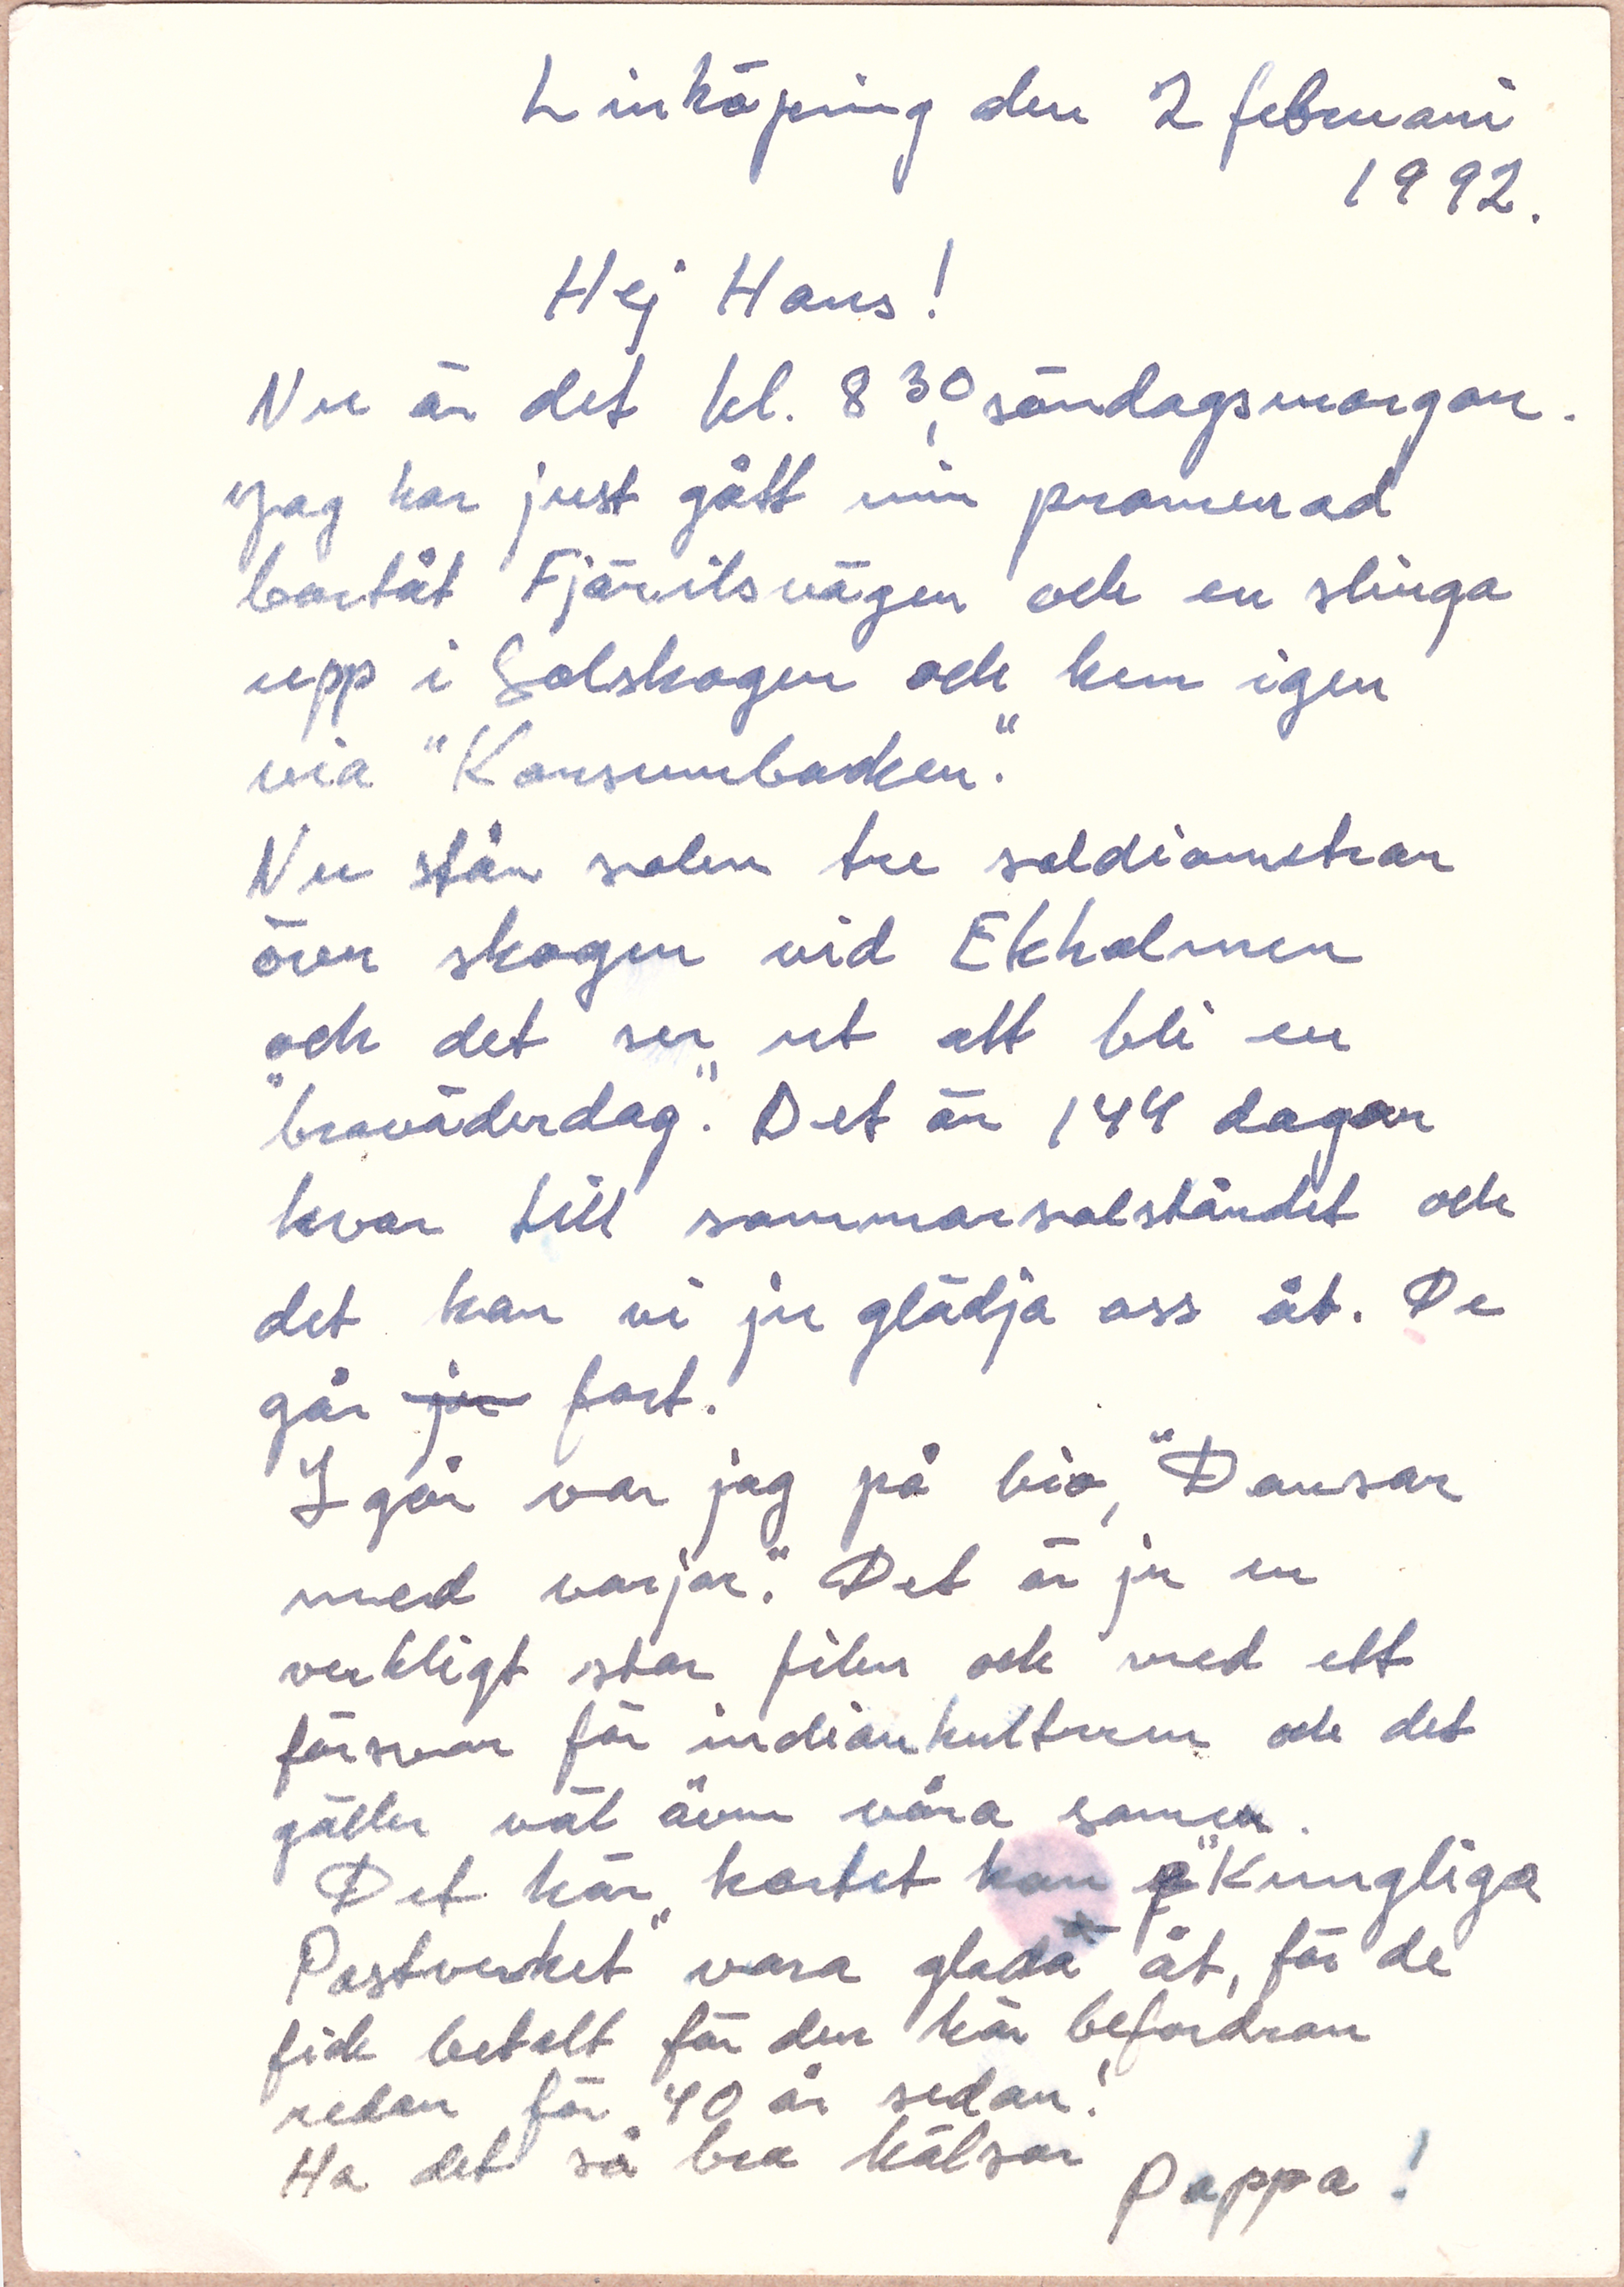 Linköping den 2 februari
1992.
Hej Hans!
Nu är det kl. 8 30, söndagsmorgon.
Jag har just gått min promenad
bortåt Fjärilsvägen och en slinga
upp i Solskogen och hem igen
via "Konsumbacken."
Nu står solen tre soldiametrar
över skogen vid Ekholmen
och det ser ut att bli en
"braväderdag". Det är 144 dagar
kvar till sommarsolståndet och
det kan vi ju glädja oss åt. De
går ju fort.
I går var jag på bio, "Dansar
med varjar." Det är ju en
verkligt stor film och med ett
försvar för indiankulturen och det
gäller väl även våra samer.
Det här kortet kan "Kungliga
Postverket" vara glada åt, för de
fick betalt för den här befordran
redan för 40 år sedan!
Ha det så bra hälsar
Pappa!